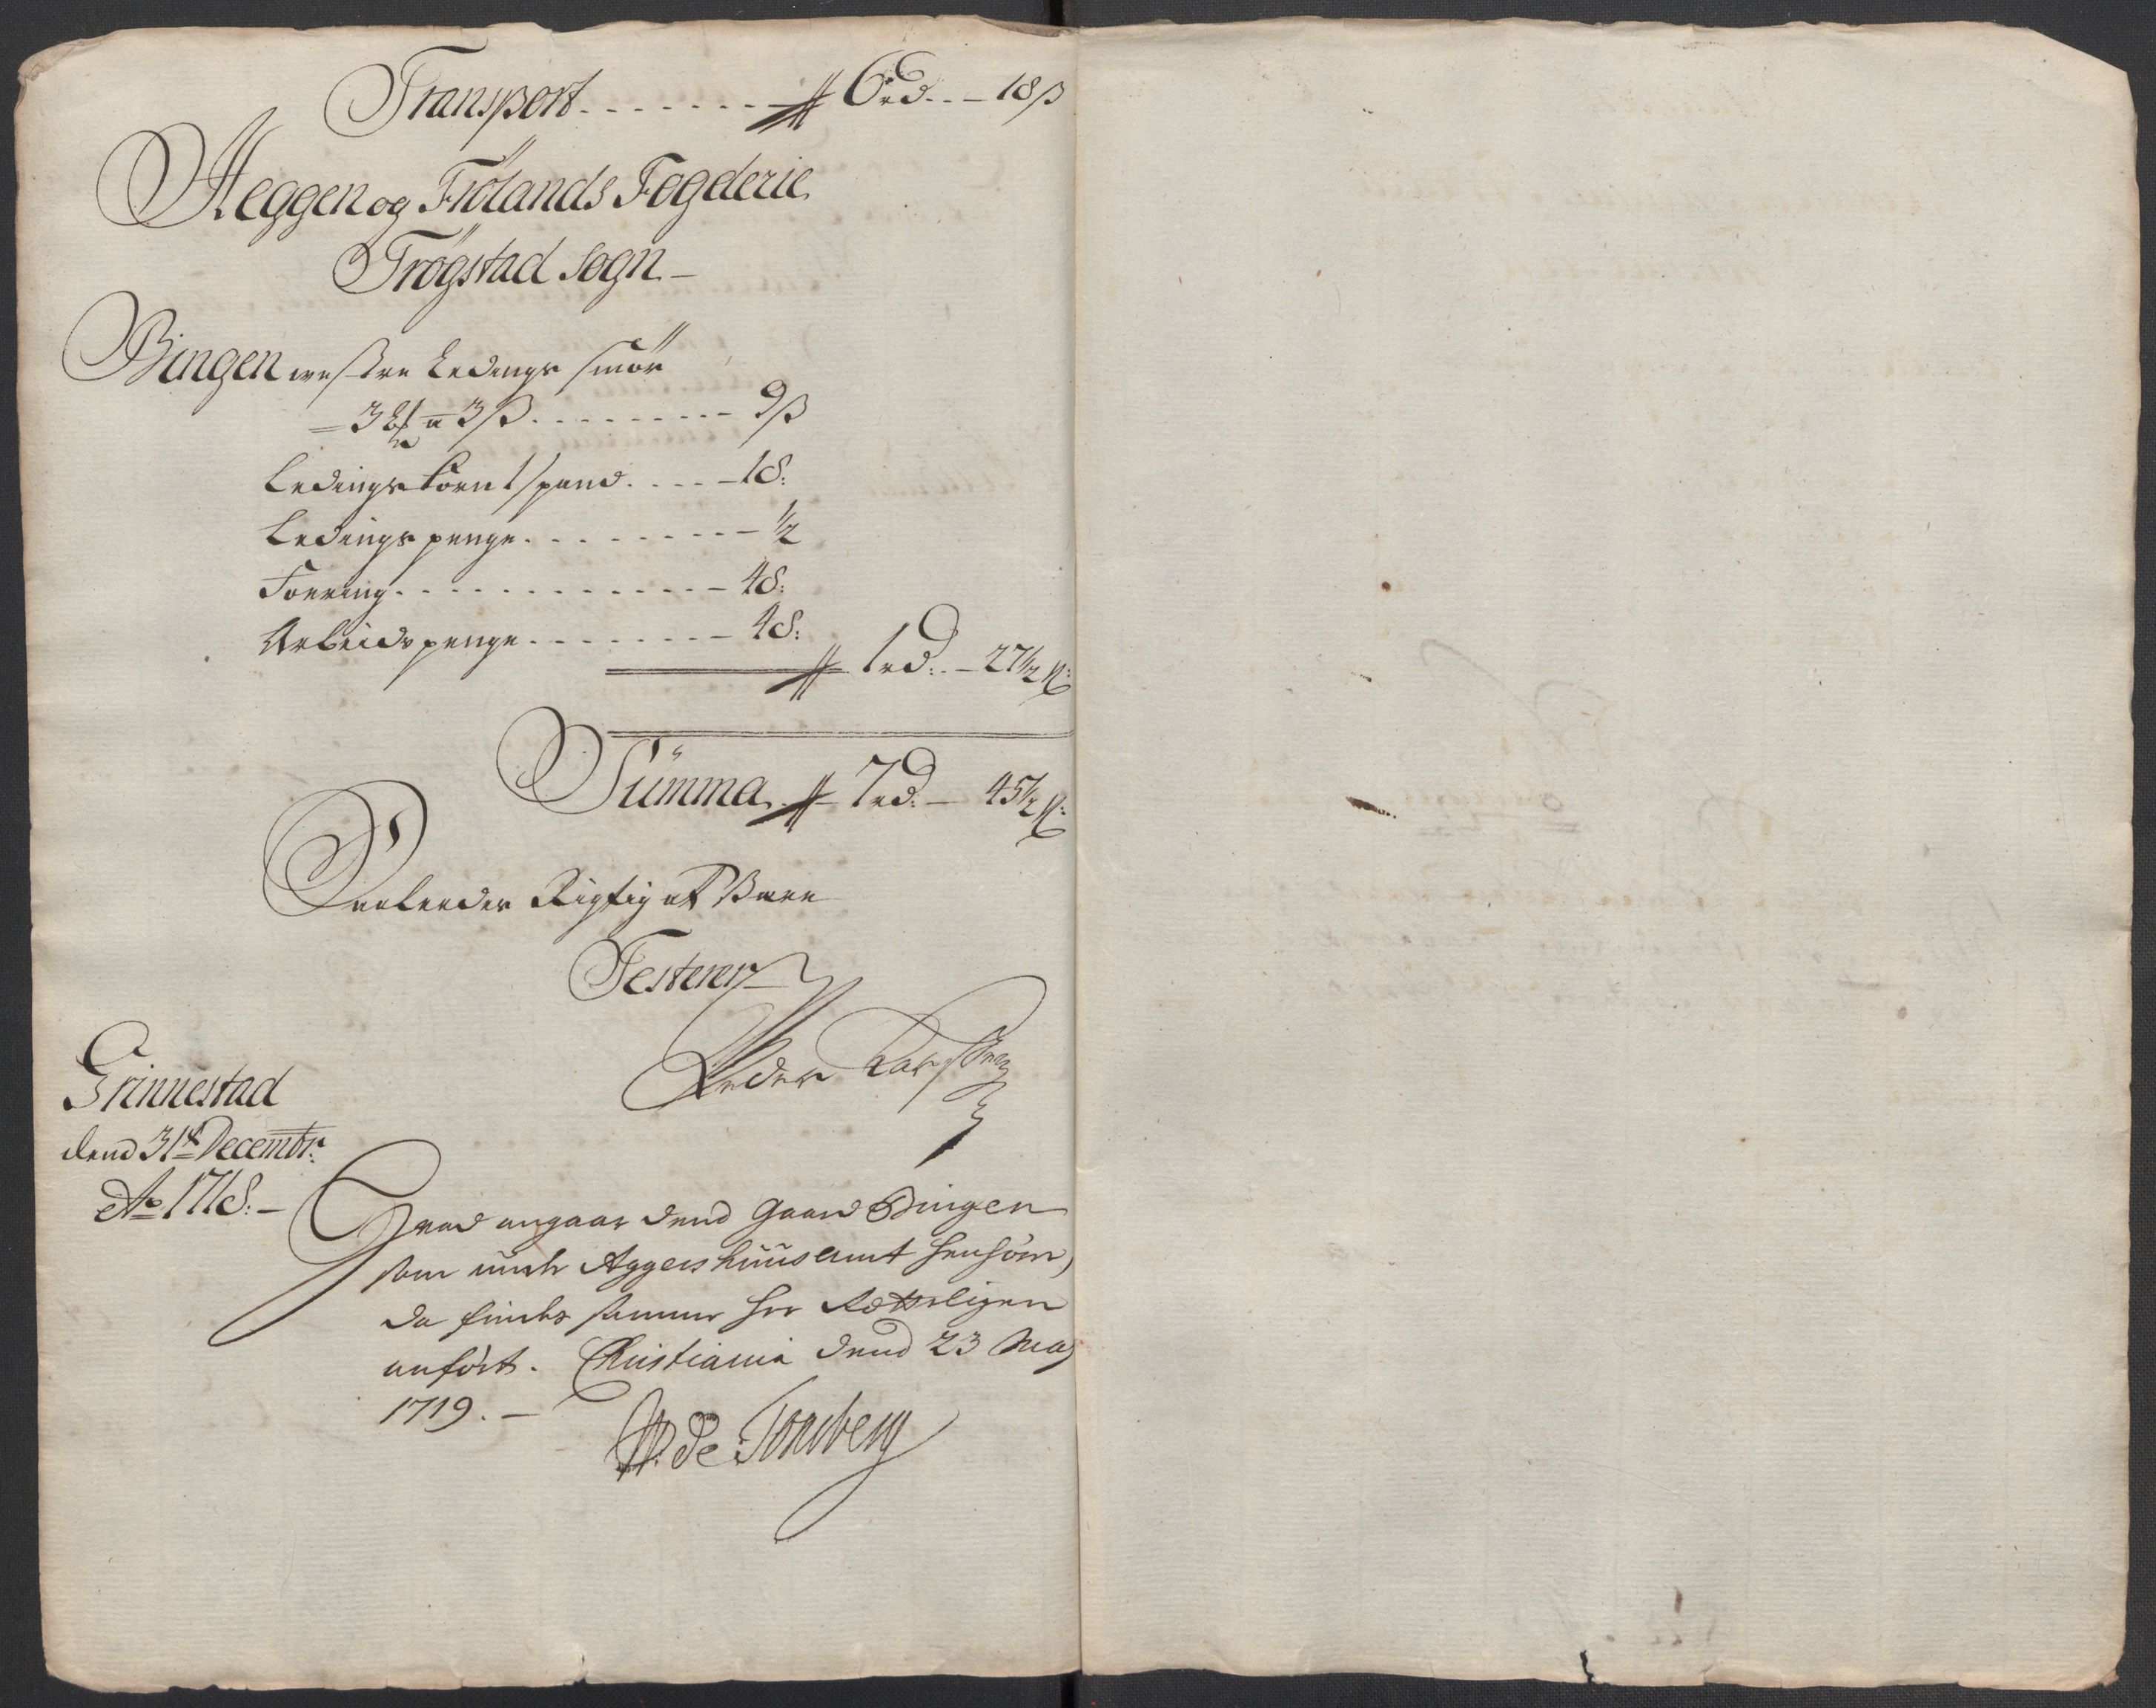 Transport . . . . . . . 6 rd. . . 18 ß
Heggen og Frølands Fogderie
Trøgstad Sogn
Bingen westre Ledings smør
3 ℔ a 3 ß . . . . . . . . . 9 ß
Ledings korn 1 spand . . . . 18:
Ledings penge . . . . . . . . ½
Foering . . . . . . . . . . . . . 48:
Arbeids penge . . . . . . . 48:
1 rd: . 27½ ß:
Summa 7 rd. 45½ ß:
Saaleedes Rigtig at Være
Testerer
Peder
Grinnestad
dend 31te Decembr:
Ao 1718:
Hvad angaar dend gaard Bingen
som under Aggershuus amt henhører,
da findes samme her Rættelligen
anført. Christiania dend 23 Maj
1719.
W. de Tonsberg